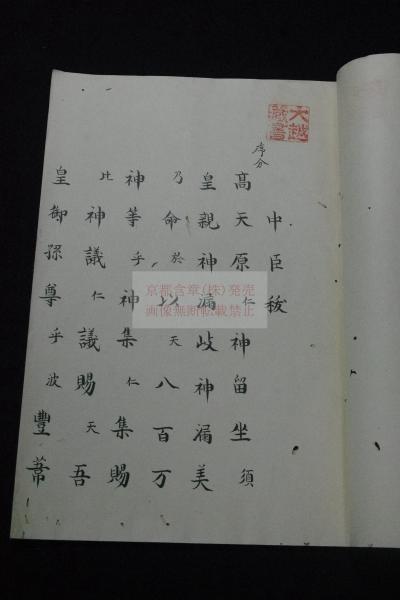 大越
蔵書
序分
中臣秡
高天原仁神留坐須
皇親神漏岐神漏美
乃命於以天八百万
神等乎神集仁集賜
比神議仁議賜天吾
皇御孫尊乎波豐葦
京都含章(株)発売
画像無断転載禁止